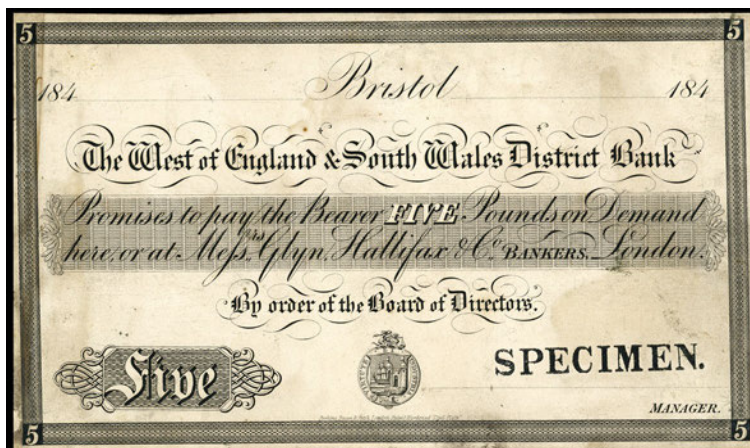 5 5
184 Bristol 184
The West of England & South Wales District Bank
Promises to pay the Bearer FIVE Pounds on Demand
here, or at Messrs Glyn, Hallifax & Co. BANKERS. London.
By order of the Board of Directors.
Five SPECIMEN.
MANAGER.
5 5